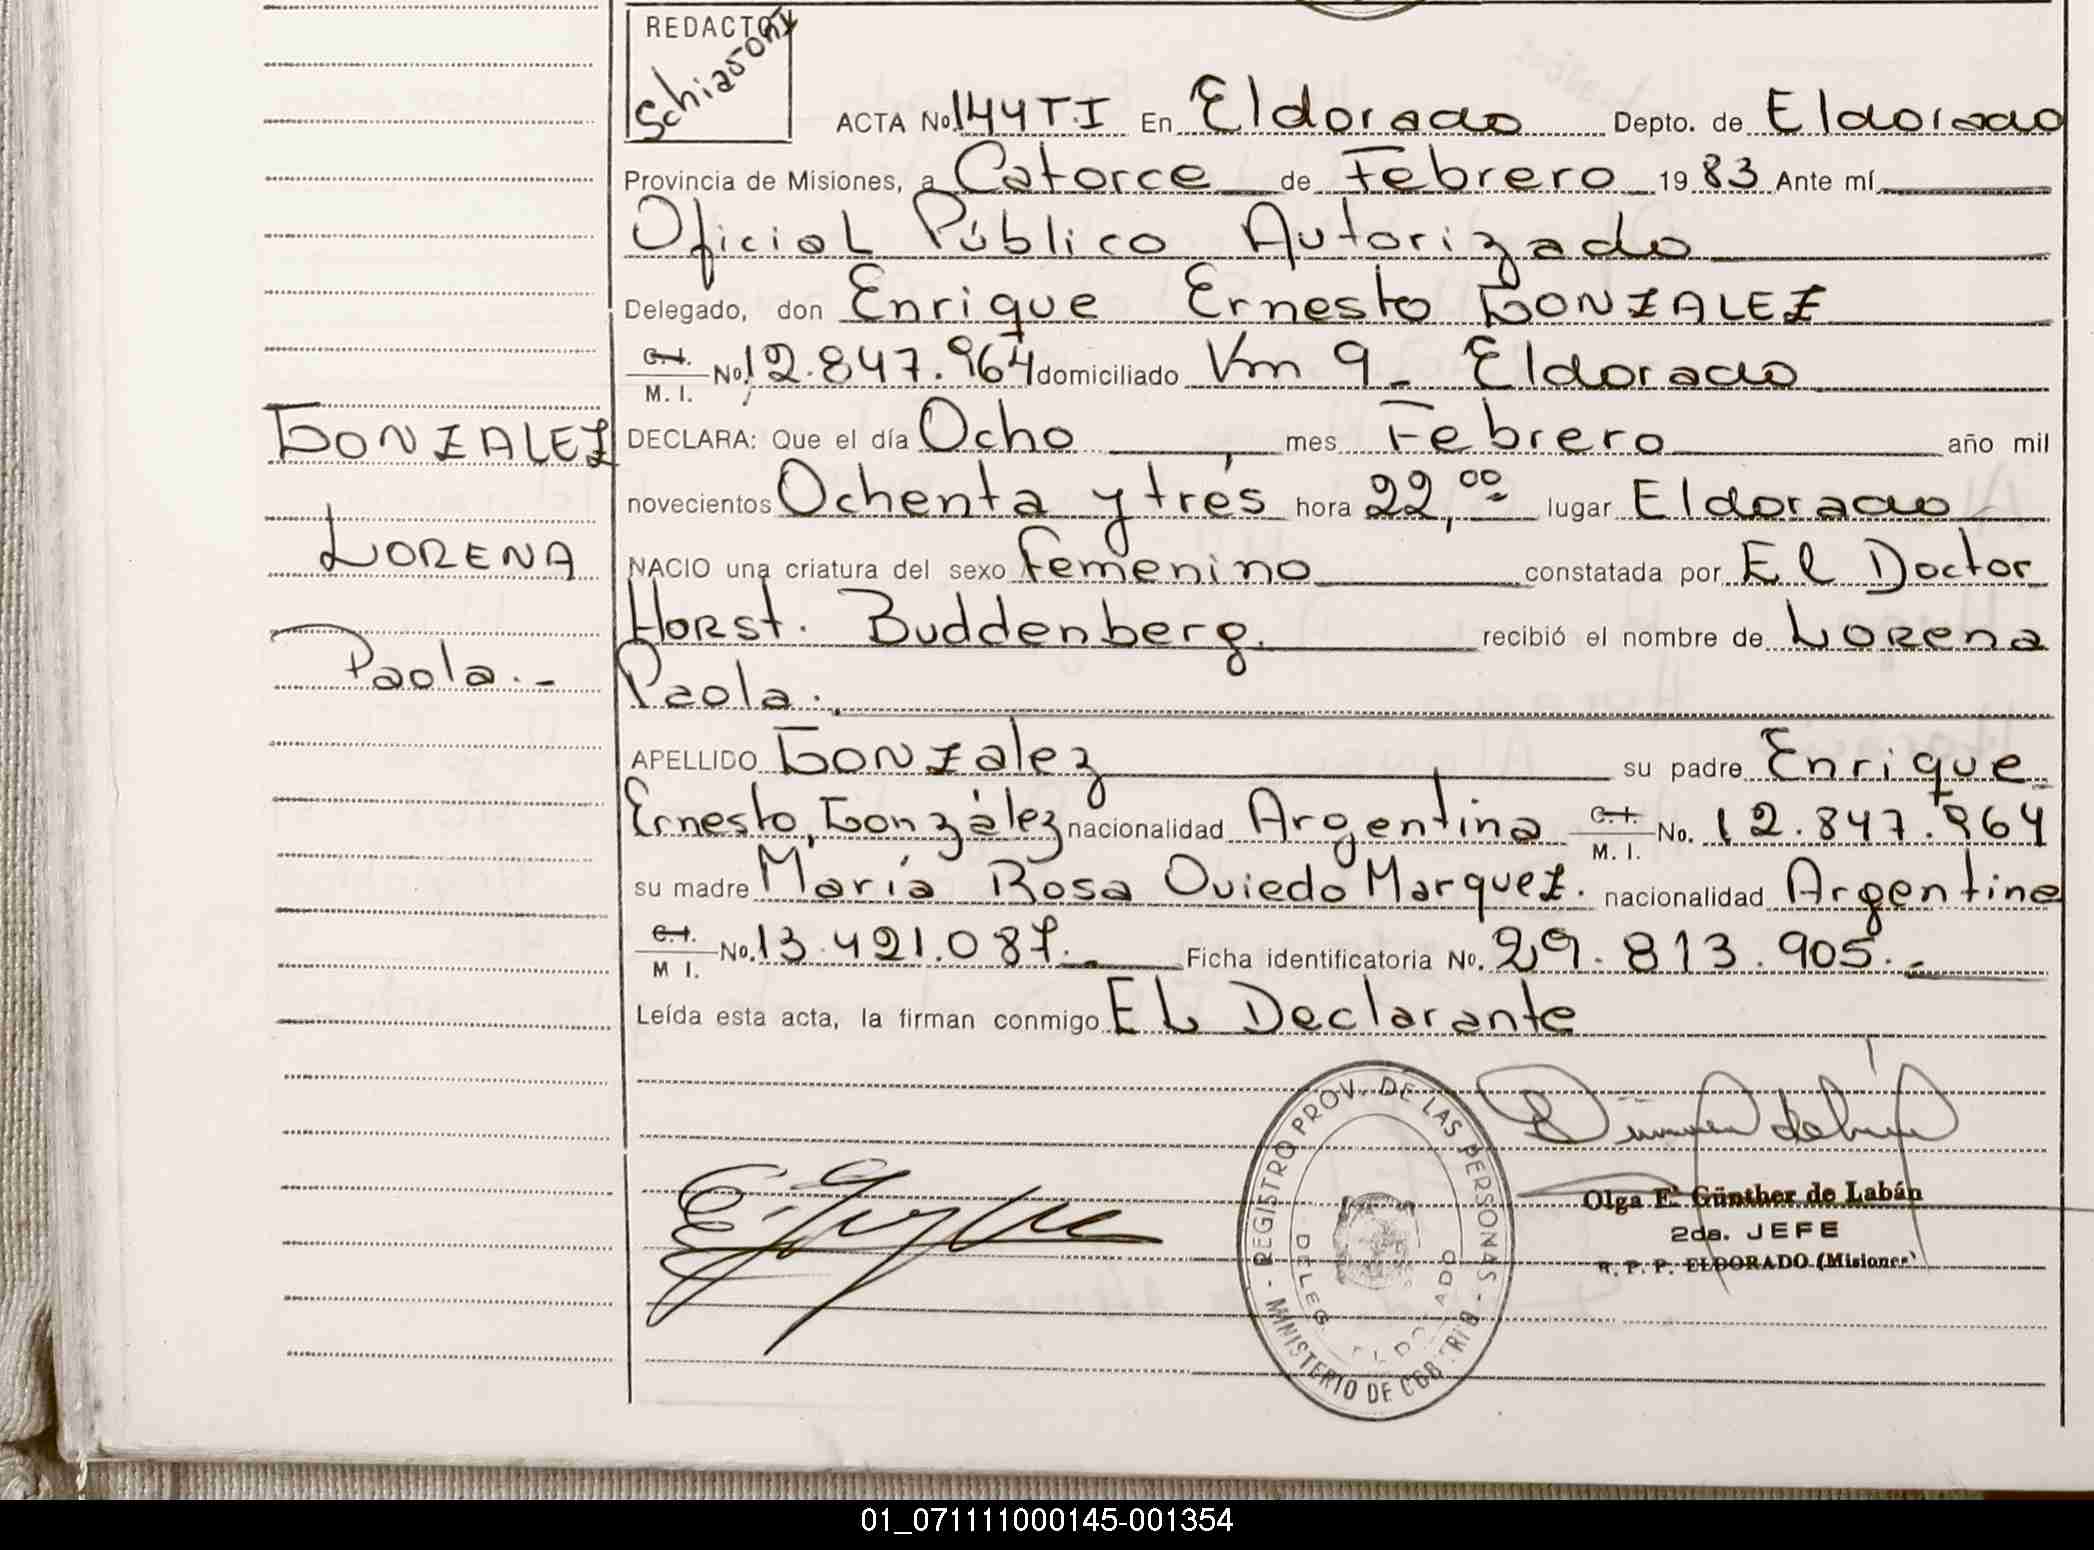 REDACTOR
Schiaroni
ACTA No. 144 T.I En Eldorado Depto. de Eldorado
Provincia de Misiones, a Catorce de Febrero 19 83 Ante mí
Oficial Público Autorizado
Delegado, don Enrique Ernesto GONZALEZ
C.I. M. I. No. 12.847.964 domiciliado Km 9 - Eldorado
GONZALEZ
DECLARA: Que el día Ocho mes Febrero año mil
novecientos Ochenta y trés hora 22,00 lugar Eldorado
LORENA
NACIO una criatura del sexo Femenino constatada por El Doctor
Horst. Buddenberg. recibió el nombre de Lorena
Paola.-
Paola.
APELLIDO Gonzalez su padre Enrique
Ernesto, González nacionalidad Argentina C.I. M. I. No. 12.847.964
su madre María Rosa Oviedo Marquez. nacionalidad Argentina
C.I. M I. No. 13.421.087.- Ficha identificatoria No. 29.813.905.-
Leída esta acta, la firman conmigo EL Declarante
REGISTRO PROV. DE LAS PERSONAS - MINISTERIO DE
Olga E. Günther de Labán
2da. JEFE
R. P. P. ELDORADO (Misiones)
01_071111000145-001354